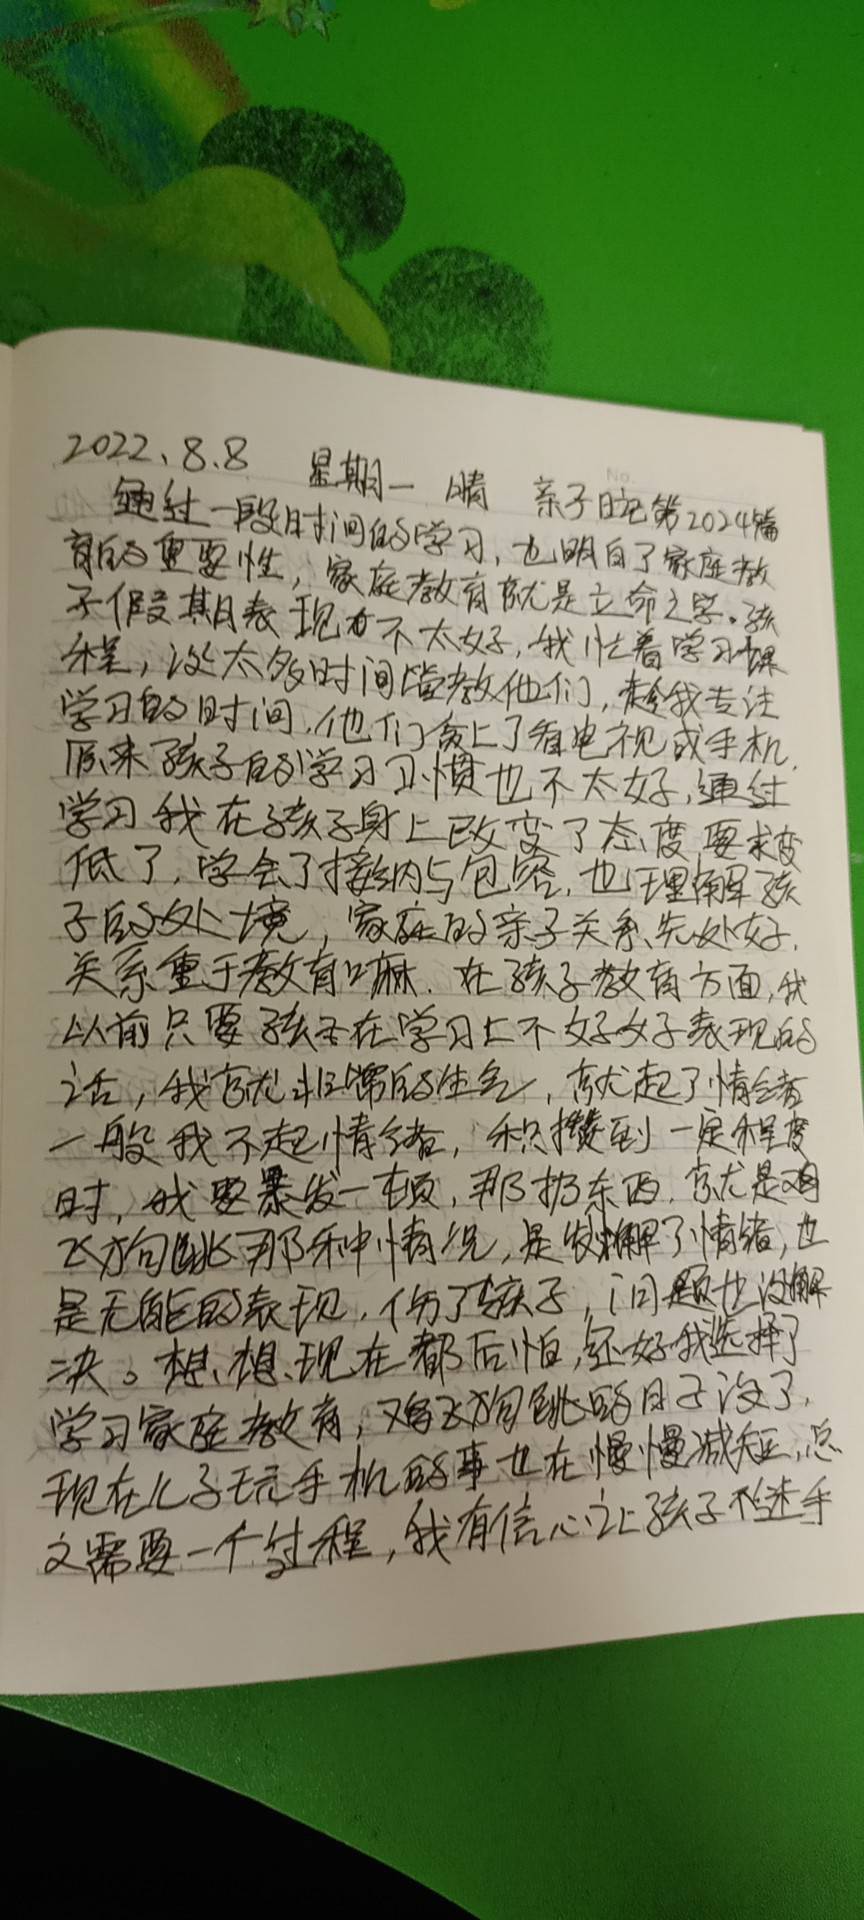 No.
2022.8.8 星期一 晴 亲子日记第2024篇
通过一段时间的学习，也明白了家庭教
育的重要性，家庭教育就是立命之学。孩
子假期表现不太好，我忙着学习课
程，没太多时间管教他们，趁我专注
学习的时间，他们会上了看电视或手机，
原来孩子的学习习惯也不太好，通过
学习我在孩子身上改变了态度要求变
低了，学会了接纳与包容，也理解孩
子的处境，家庭的亲子关系先处好，
关系重于教育嘛．在孩子教育方面，我
以前只要孩子在学习上不好好表现的
话，我就非常的生气，就起了情绪
一般我不起情绪，积攒到一定程度
时，我要暴发一顿，那扔东西，就是鸡
飞狗跳那种情况，是发解了情绪，也
是无能的表现，伤了孩子，问题也没解
决。想想现在都后怕，还好我选择了
学习家庭教育，鸡飞狗跳的日子没了，
现在儿子玩手机的事也在慢慢减短，总
之需要一个过程，我有信心让孩子不迷手